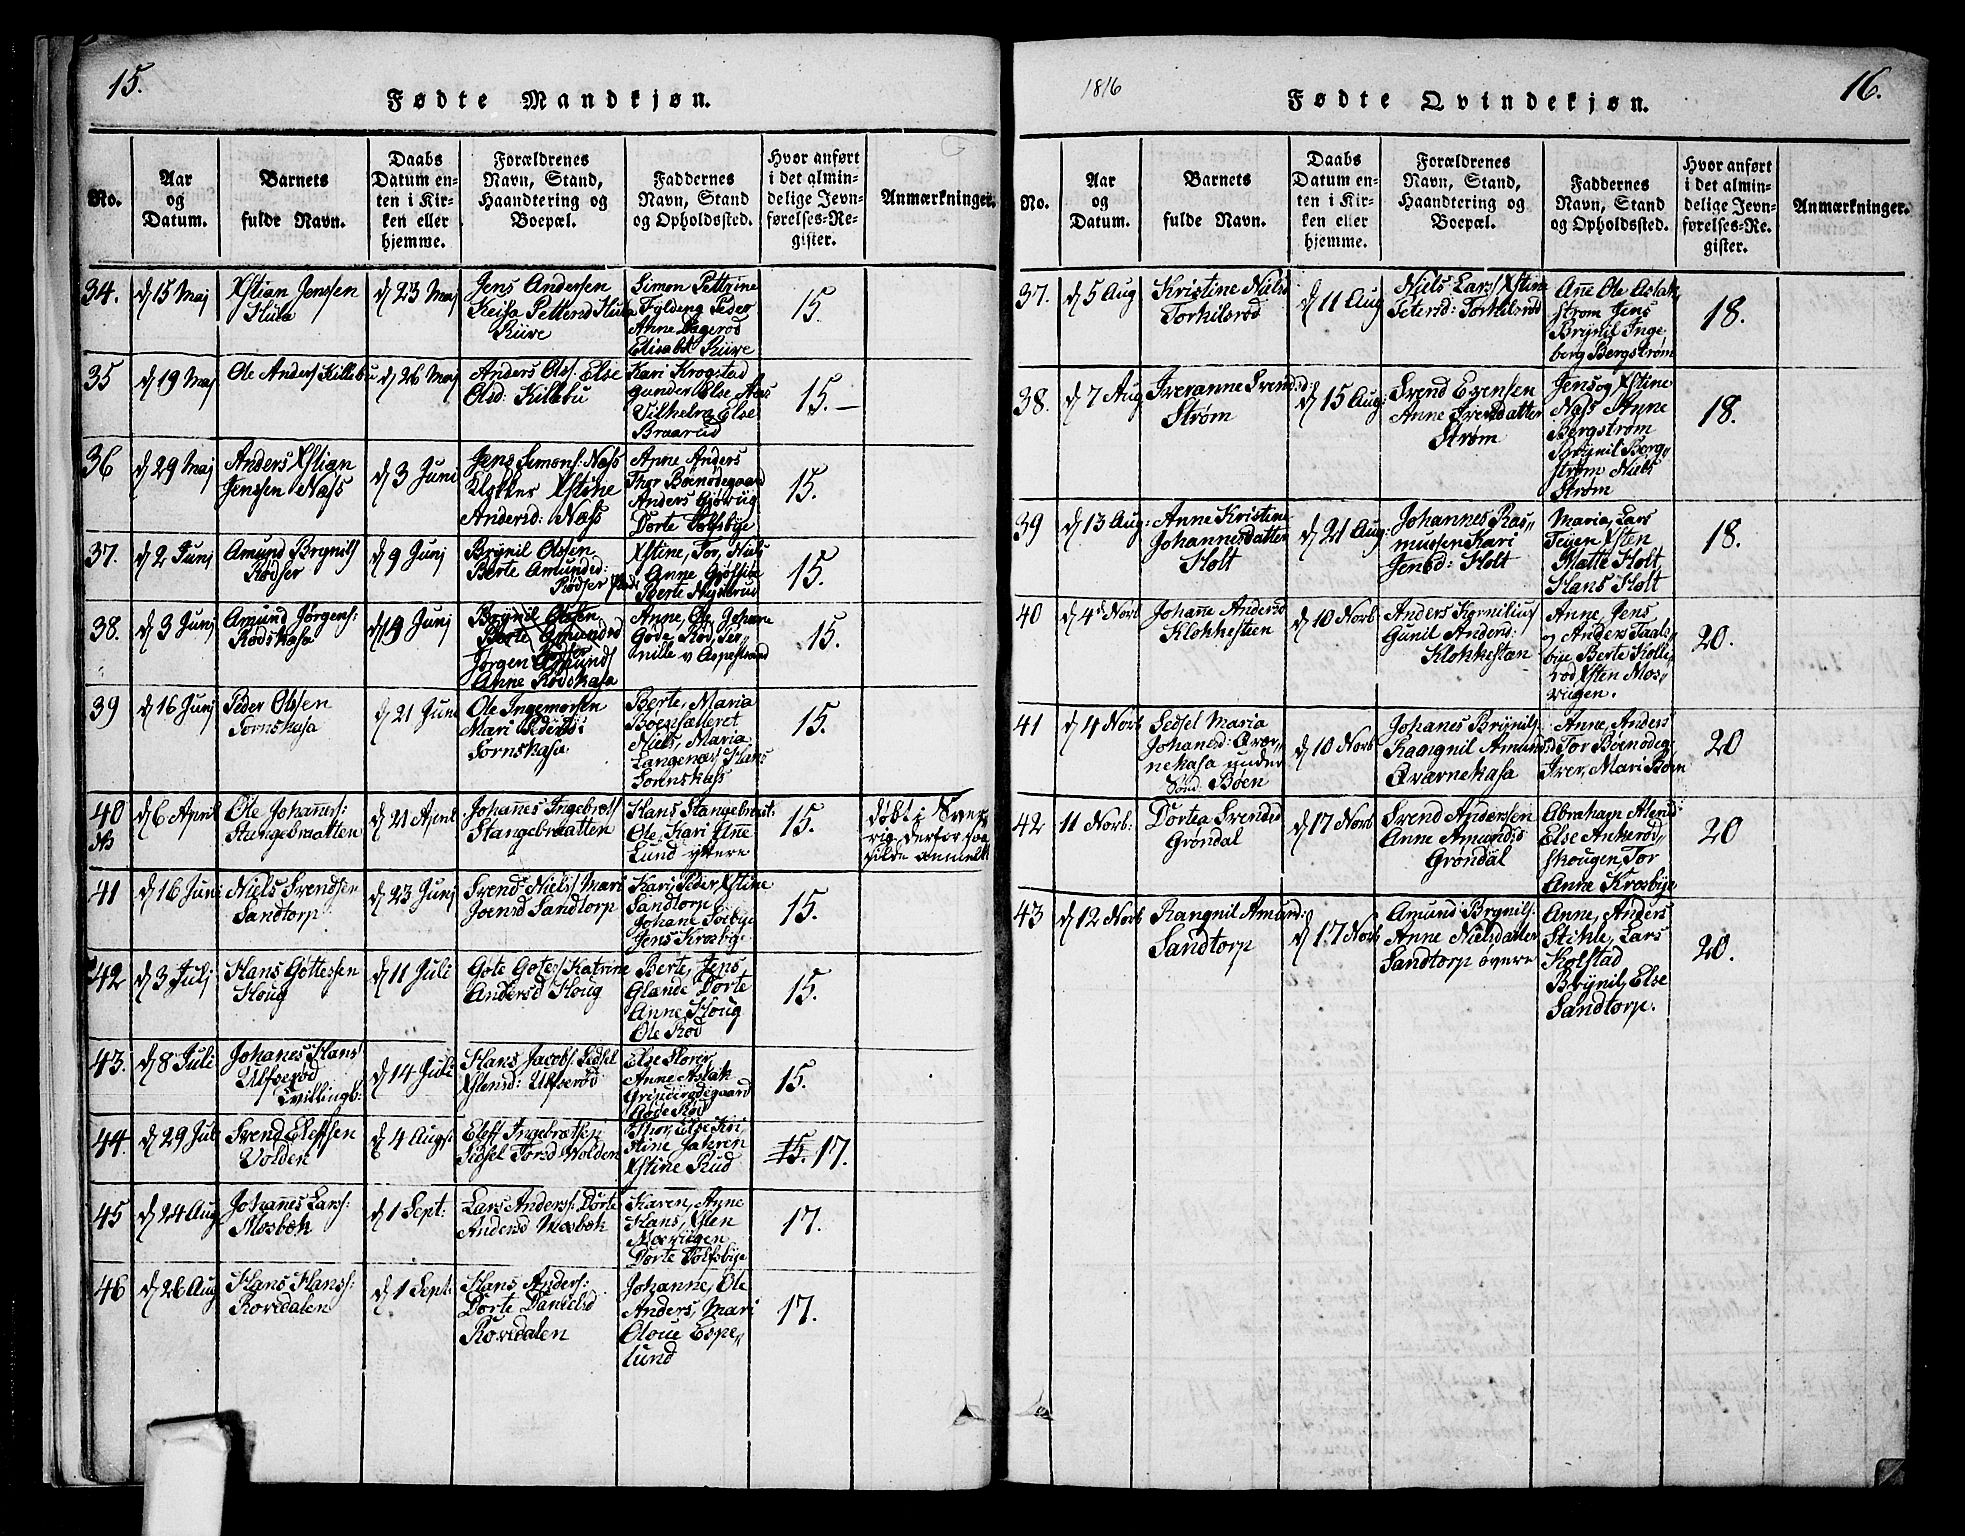 15.
Fødte Mandkjøn.
No.
Aar
og
Datum.
Barnets
fulde Navn.
Daabs
Datum en-
ten i Kir-
ken eller
hjemme.
Forældrenes
Navn, Stand,
Haandtering og
Boepæl.
Faddernes
Navn, Stand
og Opholdssted.
Hvor anført
i det almin-
delige Jevn-
førelses-Re-
gister.
Anmærkninger.
34.
d 15 Maj
Xstian Jenssen
Huta
d 23 Maj
Jens Andersen
Keisa Pettersd Huta
Riive
Simon Pettrine
Fylding Peder
Anne Dagerød
Elisabt Riive
15.
35
d 19 Maj
Ole Anders Killebu
d 26 Maj
Anders Olss. Else
Olsd: Killebu
Kari Krogstad
Gunder Else Aas
Vilhelm Else
Braarud
15.
36
d 29 Maj
Anders Xstian
Jenssen Næss
d 3 Juni
Jens Simons: Næss
Klokker Xstine
Andersd: Næss
Anne Anders
Thor Böenödegaard
Anders Gjøviig
Dorte Tolfsbye
15.
37.
d 2 Junj
Amund Brynils
Rödser
d 9 Junj
Brÿnil Olssen
Berte Amundsd:
Rödser
Xstine, Tor, Niels
Anne
Berte
15.
38.
d 3 Junj
Amund Jørgens:
Rødskasa
d 19 Junj
Brÿnil Olssen
Berte Amundsd
Rødser
Jørgen Amunds
Anne Rødskasa
Anne, Ole Johanne
Gode Rød, Per-
nille v Aspestrand
15.
39
d 16 Junj
Peder Olssen
Tornskasa
d 21 June
Ole Ingemorsen
Mari Pedersd:
Tornskasa
Berte, Maria
Böensætteret
Niels, Maria
Langenæs Hans
Tornskass
15.
40
d 6 April
Ole Johannes:
Stangebraatten
d 21 April
Johannes Ingebrets
Stangebraatten
Hans Stangebraat:
Ole, Kari Anne
Lund yttere
15.
døbt i Sver,,
rig, derfor saa
silde anmeldt
41
d 16 Juni
Niels Svendsen
Sandtorp
d 23 Junj
Svend Niels Mari
Joensd Sandtorp
Kari, Peder Xstine
Sandtorp
Johane Torbye
Jens Krosbye
15.
42
d 3 Julj
Hans Göttessen
Houg
d 11 Juli
Göte Gøtess Katrine
Andersd Houg
Berte, Jens
Glande Dorte
Anne Houg
Ole Rød
15.
43.
d 8 Juli
Johanes Hans
Ulfserød
Tvillingb:
d 14 Juli
Hans Jacobs. Sidsel
Xstensd: Ulfserød
Else Florer,
Anne Aslak
Grindiigdegaard
Gøde Rød
15.
44.
d 29 Juli
Svend Eleffsen
Volden
d 4 Augs:
Eleff Ingebretsen
Sidsel Torsd Wolden
Thor, Else Kri
stine Jahren
Xstine Rud
15. 17.
45
d 24 Aug
Johannes Lars:
Mosbæk
d 1 Sept:
Lars Anders: Dorte
Andersd Mosbæk
Karen, Anne
Hans, Xsten
Mosviigen
Dorte Tolfsbye
17.
46
d 26 Aug
Hans Hans:
Rovedalen
d 1 Sept:
Hans Anders:
Dorte Danielsd
Rovedalen
Johanne, Ole
Anders, Mari
Oloue Espe,,
lund
17.
1816
Fødte Qvindekjøn.
16.
No.
Aar
og
Datum.
Barnets
fulde Navn.
Daabs
Datum en-
ten i Kir-
ken eller
hjemme.
Forældrenes
Navn, Stand,
Haandtering og
Boepæl.
Faddernes
Navn, Stand
og Opholdssted.
Hvor anført
i det almin-
delige Jevn-
førelses-Re-
gister.
Anmærkninger.
37.
d 5 Aug
Kristine Nielsd
Torkilsrød
d 11 Aug
Niels Lars Xstine
Petersd: Torkilsrød
Anne Ole Aslak,
Strøm Jens
Brÿnil Inge
berg Bergstrøm
18.
38.
d 7 Aug
Iveranne Svendsd:
Strøm
d 15 Aug:
Svend Evensen
Anne Iversdatter
Strøm
Jens og Xstine
Næss Anne
Bergstrøm
Brÿnil Berg,,
strøm Niels
Strøm
18.
39
d 13 Aug:
Anne Kristine
Johannesdatter
Holt
d 21 Aug
Johannes Ras,,
mussen Kari
Jensd: Holt
Maria, Lars
Teijen Xsten
Matte Holt
Hans Holt
18.
40
d 4de Novb
Johane Andersd
Klokkestien
d 10 Novb
Anders Kornilius
Gunil Andersd:
Klokkestan
Anne, Jens
og Anders Taals
bye, Berte Kolle
rød Xsten Mos,,
viigen.
20.
41
d 4 Novb
Sedsel Maria
Johanesd: Qvær,,
nekasa under
Sønd: Böen
d 10 Novb
Johanes Brÿnils
Rangnil Amundsd
Qværnekasa
Anne, Anders
Tor Böenödeg:
Iver, Mari Böen
20
42
11 Novb:
Dortea Svendsd
Grøndal
d 17 Novb
Svend Andersen
Anne Amundsd
Grøndal
Abraham
Else Ankerød,,
skougen, Tor
Anne Krosbye
20
43
d 12 Novb
Rangnil Amund:
Sandtorp
d 17 Novb
Amund Brynils:
Anne Nielsdatter
Sandtorp øvere
Anne, Anders
Stikle, Lars
Kolstad
Brÿnil, Else
Sandtorp.
20.